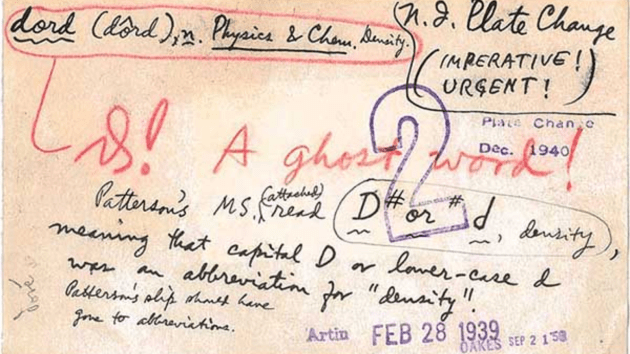 dord (dôrd), n. Physics & Chem. Density.
N.I. Plate Change
(IMPERATIVE!
URGENT!)
Plate Change
Dec. 1940
2
A ghost word!
Patterson's MS. (attached) read D # or # d, density,
meaning that capital D or lower-case d
was an abbreviation for "density".
Patterson's slip should have
gone to abbreviations.
Artin FEB 28 1939
OAKES SEP 21